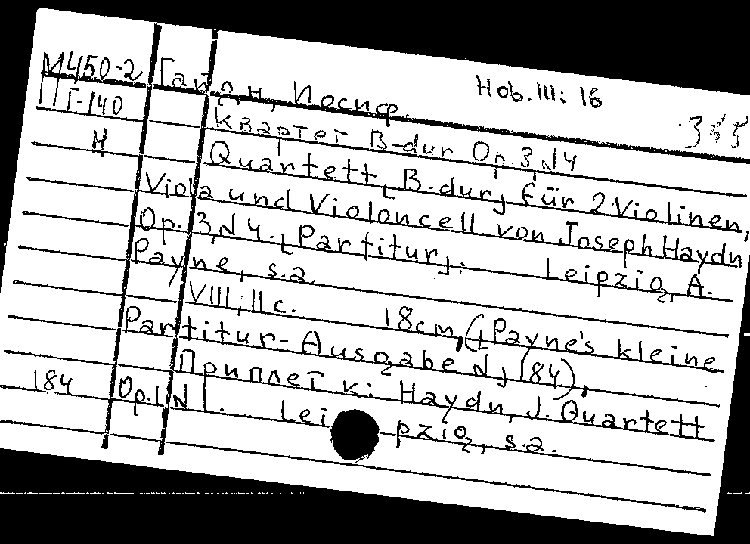 М450-2 Гайдн, Иосиф. Hob. III: 16
Г-140 Квартет B-dur Op. 3, N4
H Quartett, [B-dur] für 2 Violinen,
Viola und Violoncell von Joseph Haydn
Op. 3, N 4. [Partitur]. Leipzig, A.
Payne, s.a.
VIII; 11 c. 18cm, ([Payne's kleine
Partitur-Ausgabe N] 184).
Приплет к: Haydn, J. Quartett
184 Op. 1, N 1. Leipzig, s.a.